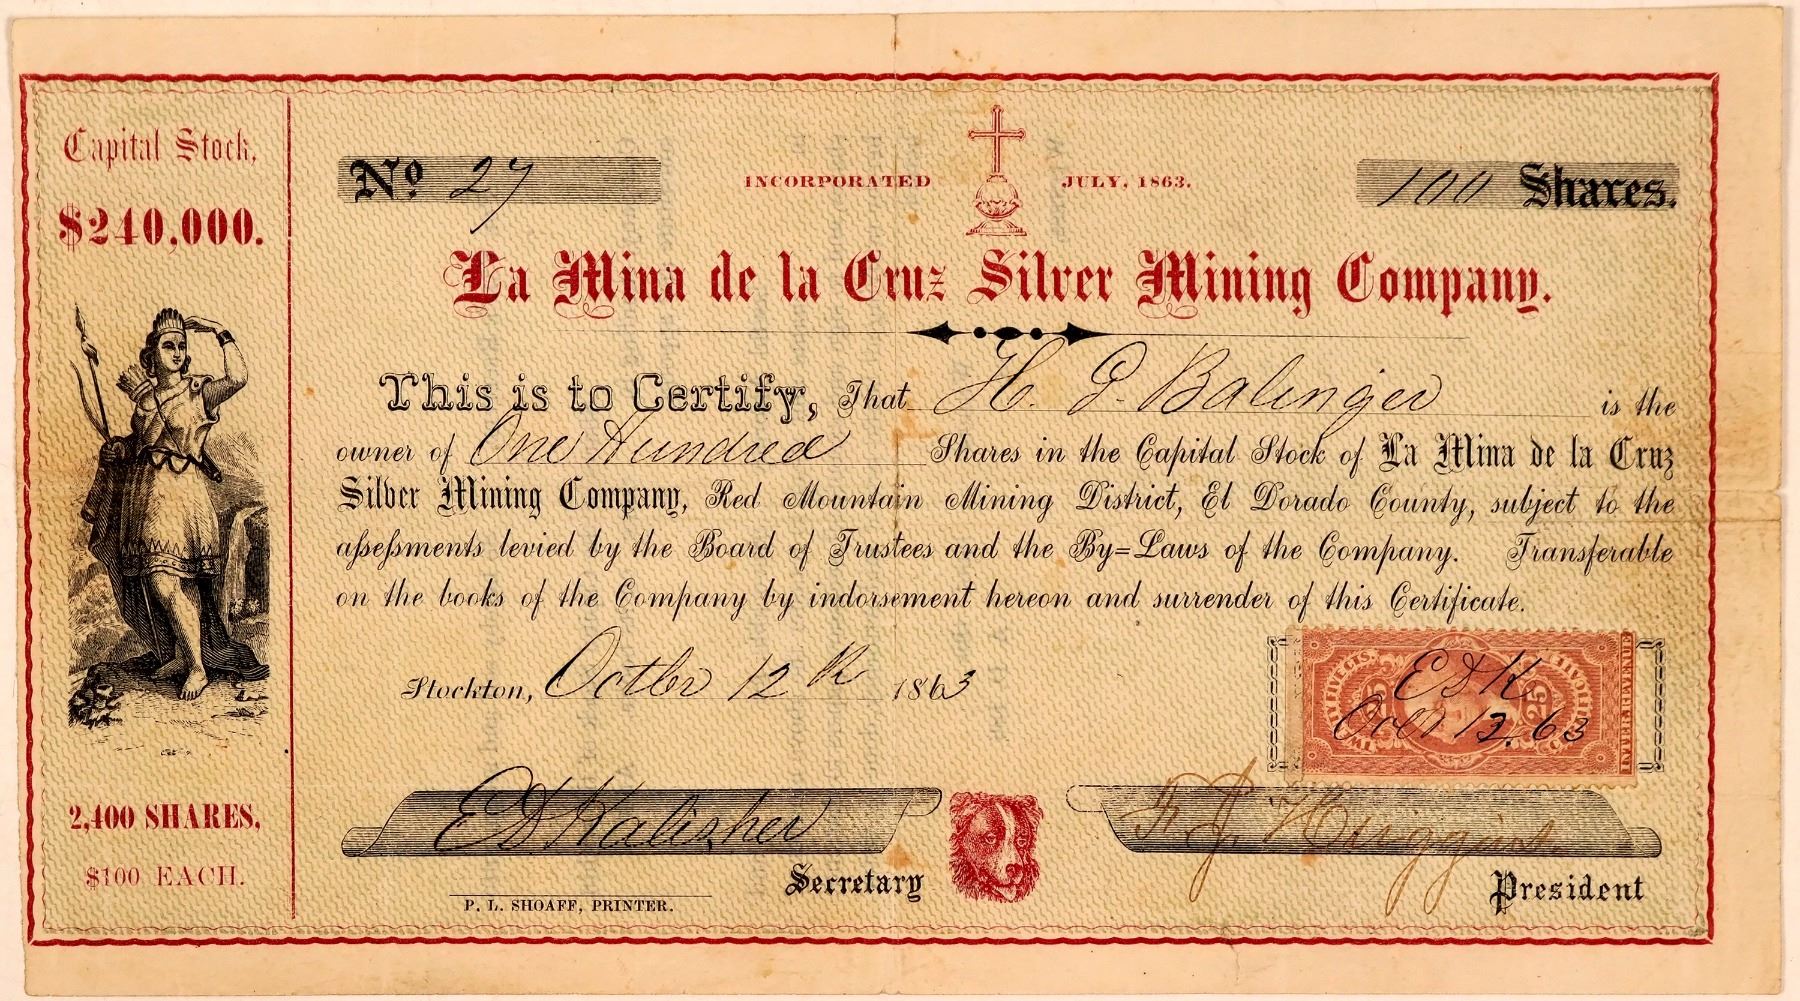 Capital Stock,
$240,000.
2,400 SHARES,
$100 EACH.
No 27
INCORPORATED JULY, 1863.
100 Shares.
La Mina de la Cruz Silver Mining Company.
This is to Certify, That H. J. Balinger is the
owner of One Hundred Shares in the Capital Stock of La Mina de la Cruz
Silver Mining Company, Red Mountain Mining District, El Dorado County, subject to the
aſseſsments levied by the Board of Trustees and the By=Laws of the Company. Transferable
on the books of the Company by indorsement hereon and surrender of this Certificate.
Stockton, Octbr 12th 1863
EDK
Oct 12. 63
25 25
E D Kalisher
Secretary
Huggins.
President
P. L. SHOAFF, PRINTER.